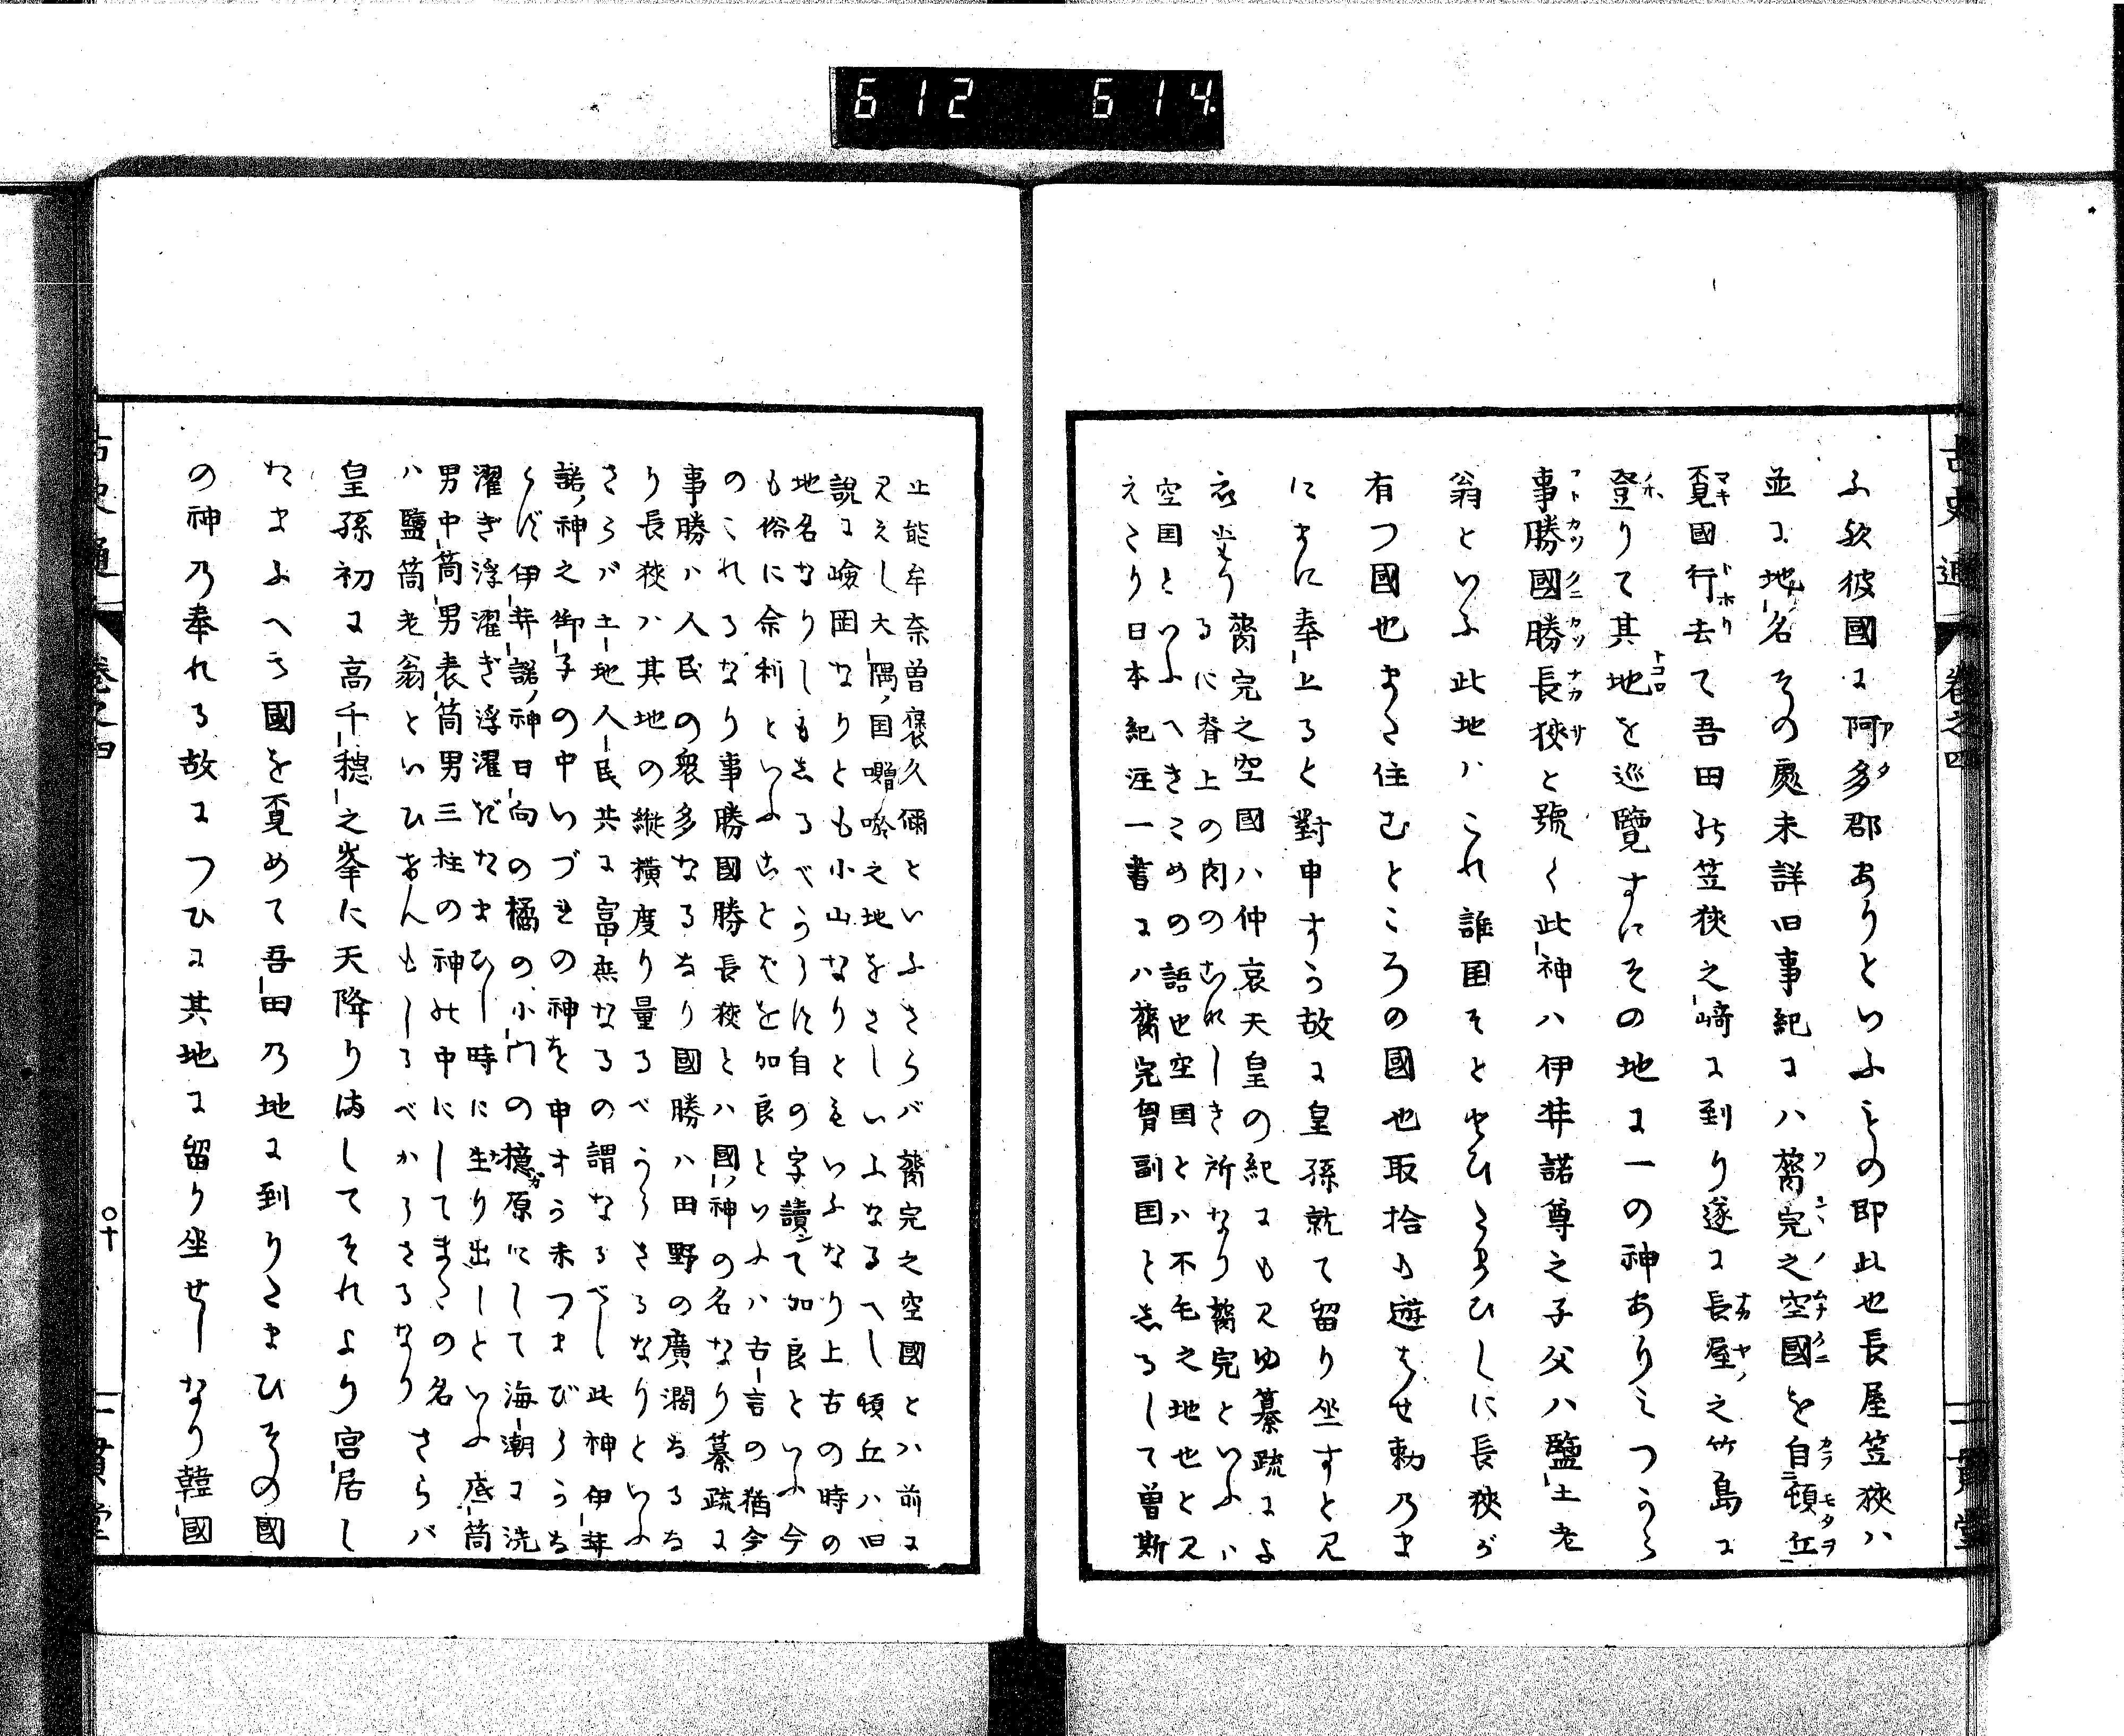 612 614
古史通 卷之四
ふ欤彼國に阿多郡ありといふもの即此也長屋笠狹ハ
並に地名その處未詳旧事紀にハ膂宍之空國を自頓丘
覓國行去て吾田乃笠狹之﨑に到り遂に長屋之竹島に
登りて其地を巡覽すにその地に一の神ありみつから
事勝國勝長狹と號く此神ハ伊弉諾尊之子父ハ鹽土老
翁といふ此地ハこれ誰国そととひ
ひしに長狹が
有つ國也また住むところの國也取捨
遊
せ勅乃ま
にまに奉上ると對申す
故に皇孫就て留り坐すと見
膂宍之空國ハ仲哀天皇の紀にも見ゆ纂疏によ
るに脊上の肉の
き所なり膂宍といふハ
空国といふへきこめの語也空国とハ不毛之地也と又
えたり日本紀注一書にハ膂宍胷副国としるして曽斯
止能牟奈曽褒久儞といふさらバ膂宍之空國とハ前に
見えし大隅ノ国囎唹之地をさしいふなるへし頓丘ハ旧
説に嶮固なりとも小山なりともいふなり上古の時の
地名なりしもしるべからす自の字讀て加良といふ今
も俗に余利といふことを加良といふハ古言の猶今
のこれるなり事勝國勝長狹とハ國神の名なり纂疏に
事勝ハ人民の衆多なるなり國勝ハ田野の廣濶なるな
り長狹ハ其地の縱横度り量るべからさるなりといふ
さらバ土地人民共に富庶なるの謂なるべし此神伊弉
諾ノ神之御子の中いづれの神を申す
未つまびらかな
らず伊弉諾ノ神日向の橘の小門の檍原にして海潮に洗
濯ぎ浮濯ぎ浮濯ぎたまひし時に生り出しといふ底筒
男中筒男表筒男三柱の神の中にしてまた
の名
さらバ
ハ鹽筒老翁といひ
んもしるべからさるなり
皇孫初に高千穗之峯に天降り
してそれより宮居し
たまふへき國を覓めて吾田乃地に到りたまひその國
の神乃奉れる故につひに其地に留り坐せしなり韓國
古史通 卷之四
〇十
一貫堂